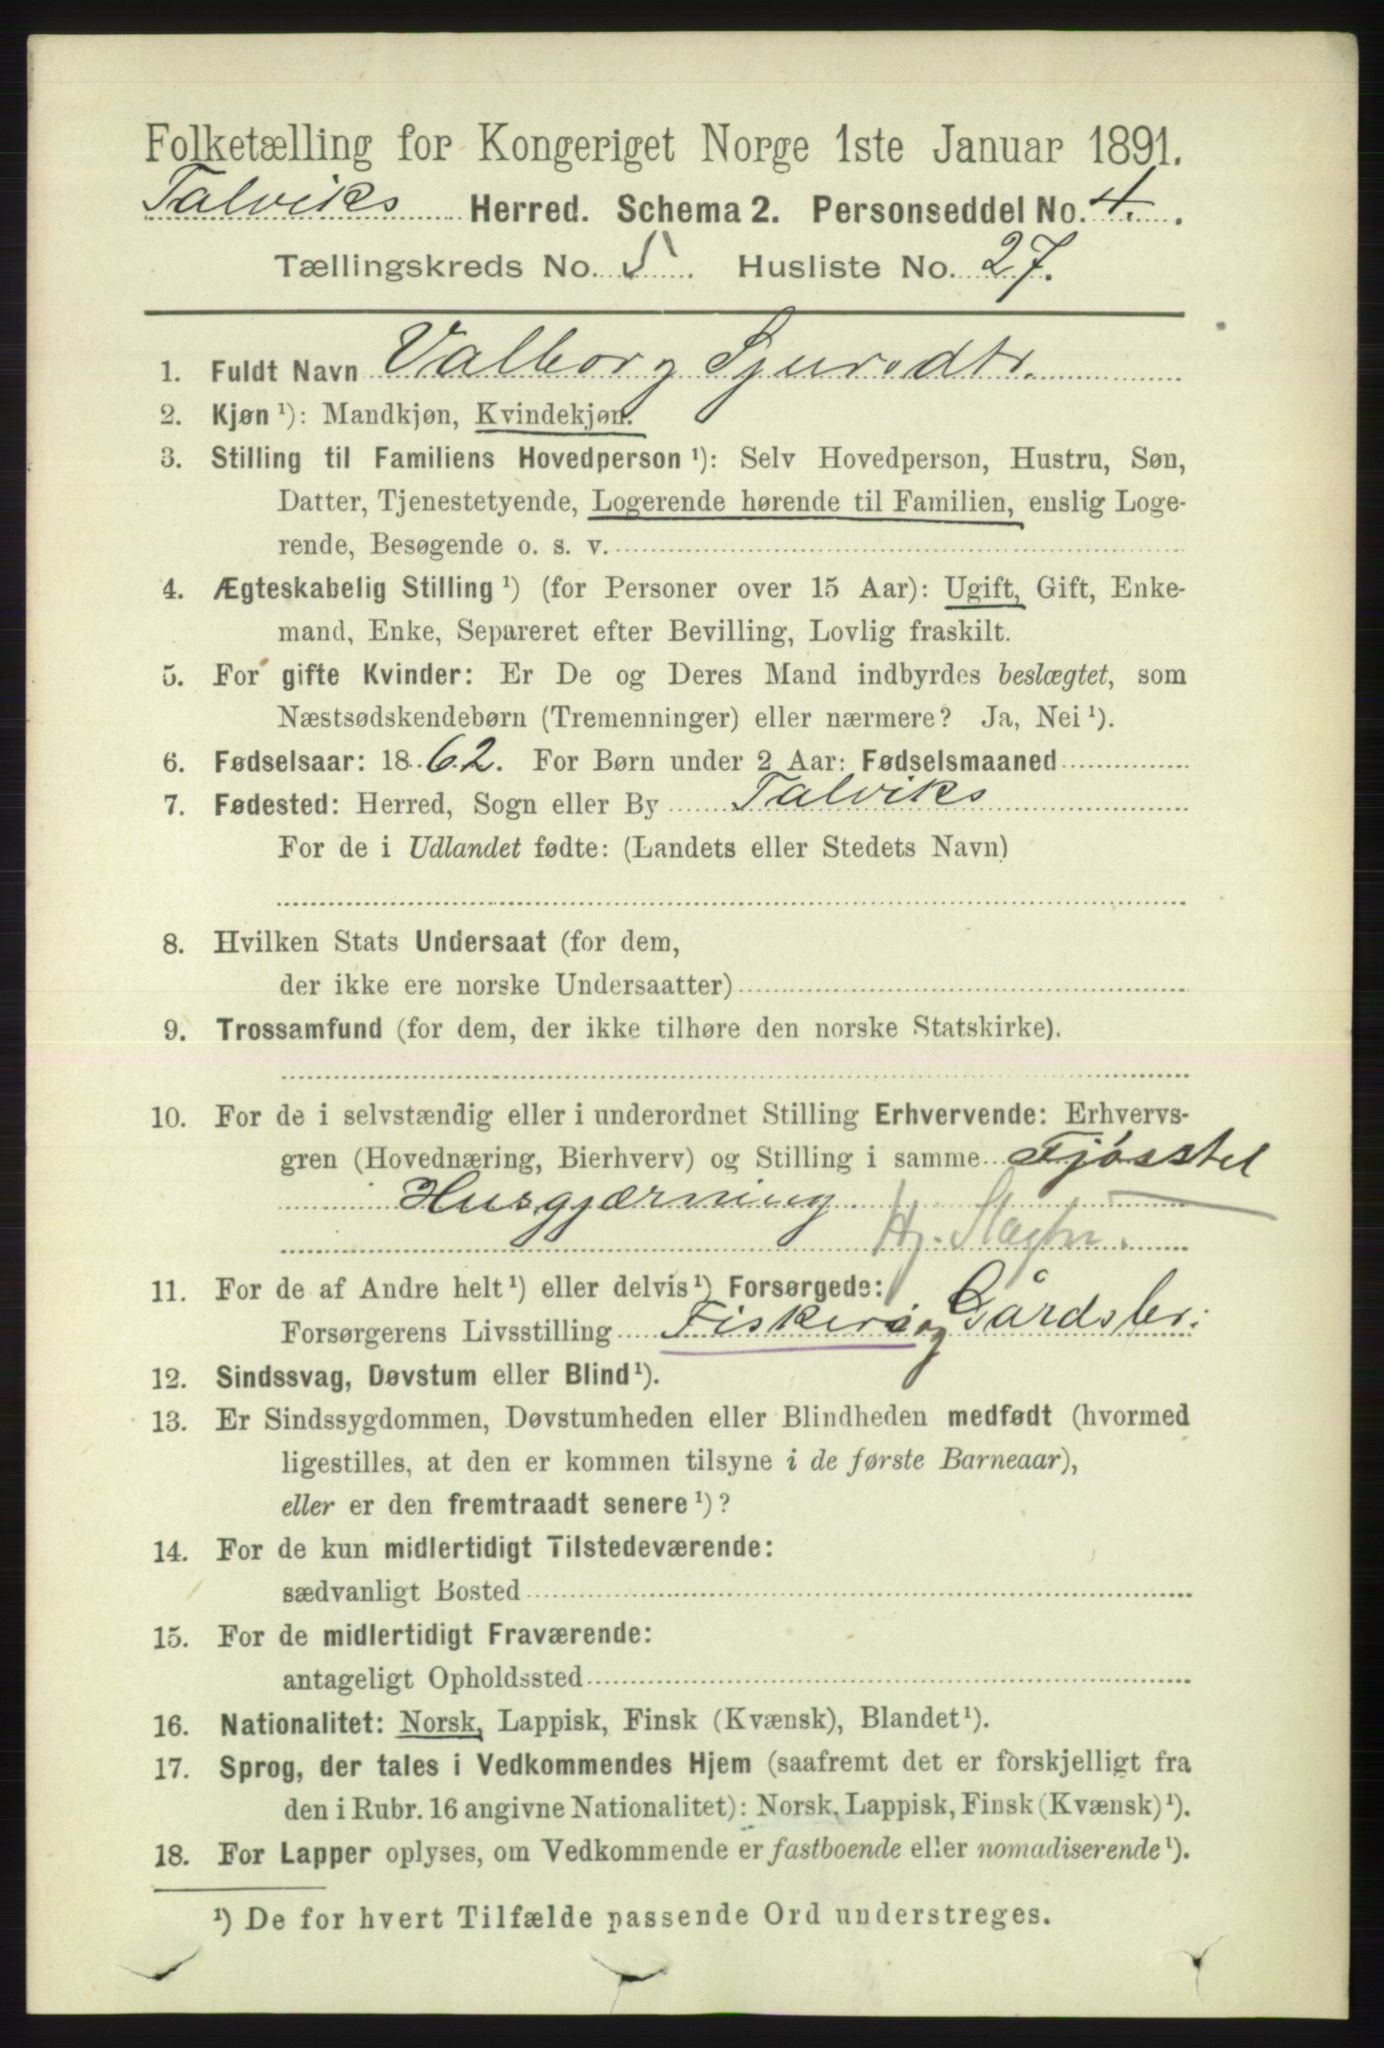 Folketælling for Kongeriget Norge 1ste Januar 1891.
Talviks Herred. Schema 2. Personseddel No. 4.
Tællingskreds No. 5. Husliste No. 27.
1. Fuldt Navn Valborg Sjursdtr.
2. Kjøn ¹): Mandkjøn, Kvindekjøn.
3. Stilling til Familiens Hovedperson ¹): Selv Hovedperson, Hustru, Søn,
Datter, Tjenestetyende, Logerende hørende til Familien, enslig Loge-
rende, Besøgende o. s. v.
4. Ægteskabelig Stilling ¹) (for Personer over 15 Aar): Ugift, Gift, Enke-
mand, Enke, Separeret efter Bevilling, Lovlig fraskilt.
5. For gifte Kvinder: Er De og Deres Mand indbyrdes beslægtet, som
Næstsødskendebørn (Tremenninger) eller nærmere? Ja, Nei ¹).
6. Fødselsaar: 1862. For Børn under 2 Aar: Fødselsmaaned
7. Fødested: Herred, Sogn eller By Talviks
For de i Udlandet fødte: (Landets eller Stedets Navn)
8. Hvilken Stats Undersaat (for dem,
der ikke ere norske Undersaatter)
9. Trossamfund (for dem, der ikke tilhøre den norske Statskirke).
10. For de i selvstændig eller i underordnet Stilling Erhvervende: Erhvervs-
gren (Hovednæring, Bierhverv) og Stilling i samme Fjøsstel
Husgjærning
Hj. Slagtn.
11. For de af Andre helt ¹) eller delvis ¹) Forsørgede:
Forsørgerens Livsstilling Fisker og Gårdsbr:
12. Sindssvag, Døvstum eller Blind ¹).
13. Er Sindssygdommen, Døvstumheden eller Blindheden medfødt (hvormed
ligestilles, at den er kommen tilsyne i de første Barneaar),
eller er den fremtraadt senere ¹)?
14. For de kun midlertidigt Tilstedeværende:
sædvanligt Bosted
15. For de midlertidigt Fraværende:
antageligt Opholdssted
16. Nationalitet: Norsk, Lappisk, Finsk (Kvænsk), Blandet ¹).
17. Sprog, der tales i Vedkommendes Hjem (saafremt det er forskjelligt fra
den i Rubr. 16 angivne Nationalitet): Norsk, Lappisk, Finsk (Kvænsk) ¹).
18. For Lapper oplyses, om Vedkommende er fastboende eller nomadiserende ¹).
¹) De for hvert Tilfælde passende Ord understreges.